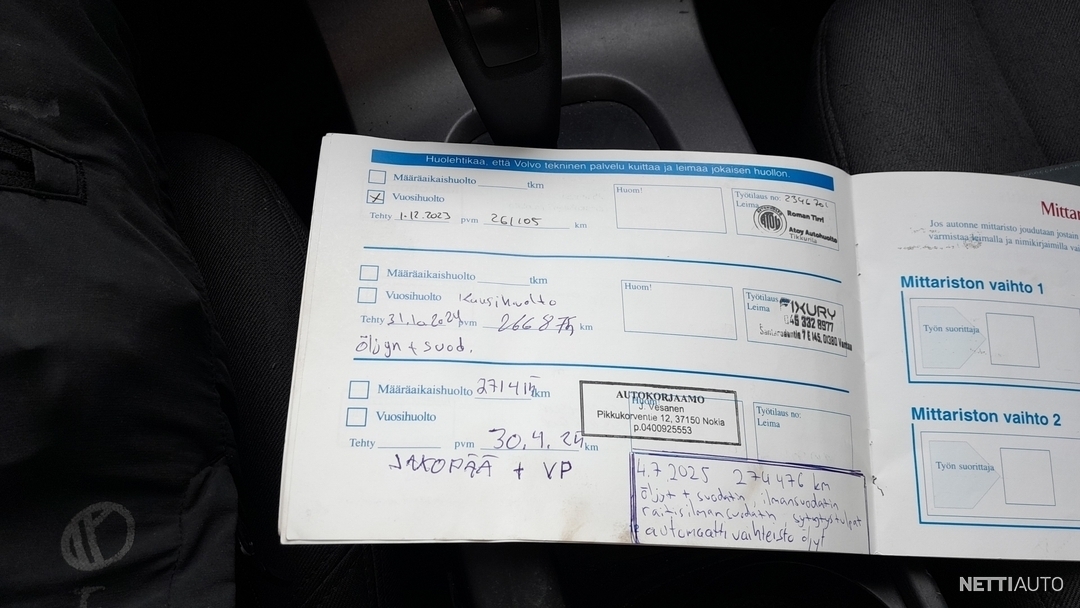 Huolehtikaa, että Volvo tekninen palvelu kuittaa ja leimaa jokaisen huollon.
Määräaikaishuolto tkm
Vuosihuolto
Tehty 1.12.2023 pvm 261105 km
Huom!
Työtilaus no: 2346701
Leima
Roman Tirri
Atoy Autohuolto
Tikkurila
Määräaikaishuolto tkm
Vuosihuolto Kuusihuolto
Tehty 31.10.2024 pvm 266875 km
öljyn + suod.
Huom!
Työtilaus
Leima
FIXURY
045 332 8977
7 E 145, 01380 Vantaa
Määräaikaishuolto 271415 tkm
Vuosihuolto
Tehty pvm 30.4.25 km
JAKOPÄÄ + VP
Huom!
AUTOKORJAAMO
J. Vesanen
Pikkukorventie 12, 37150 Nokia
p.0400925553
Työtilaus no:
Leima
4.7.2025 274476 km
öljyt + suodatin, ilmansuodatin
raitisilmansuodatin, sytytystulpat
automaatti vaihteisto öljyt
Mittar
Jos autonne mittaristo joudutaan jostain
varmistaa leimalla ja nimikirjaimilla
Mittariston vaihto 1
Työn suorittaja
Mittariston vaihto 2
Työn suorittaja
NETTIAUTO